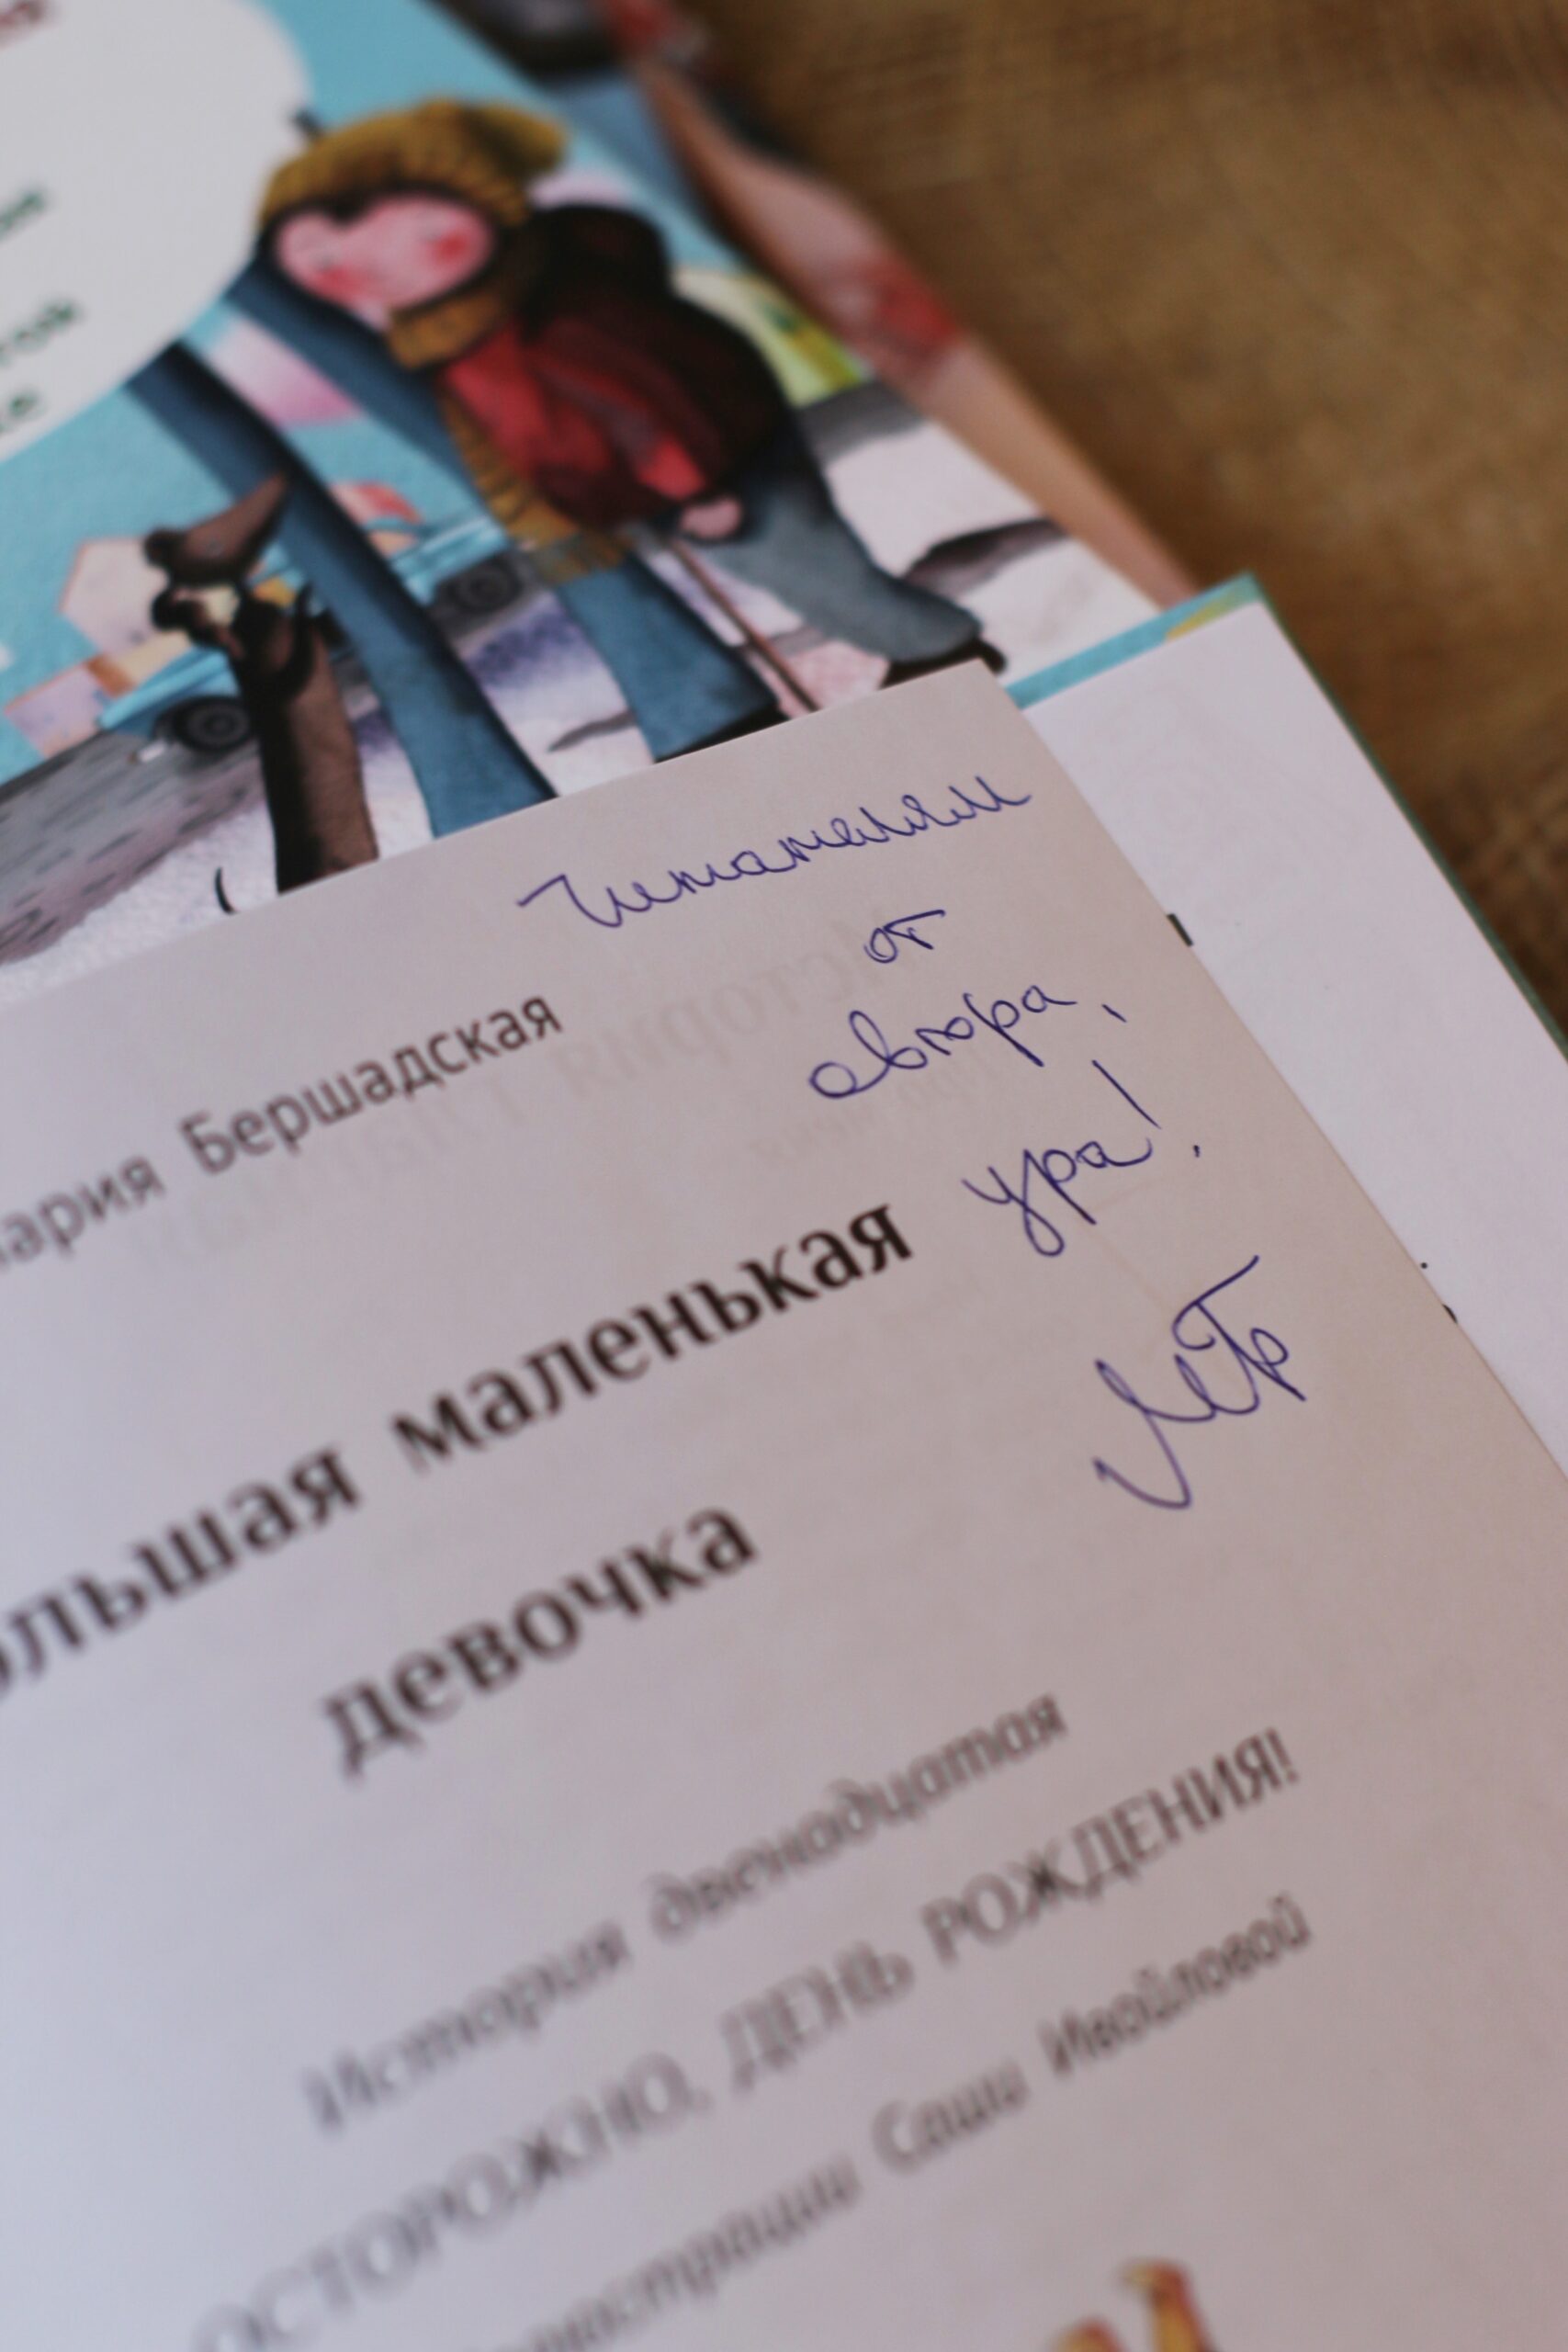 Читателям
от
автора,
ура!
МБ
мария Бершадская
ольшая маленькая
девочка
История двенадцатая
ОСТОРОЖНО, ДЕНЬ РОЖДЕНИЯ!
люстрации Саши Ивойловой